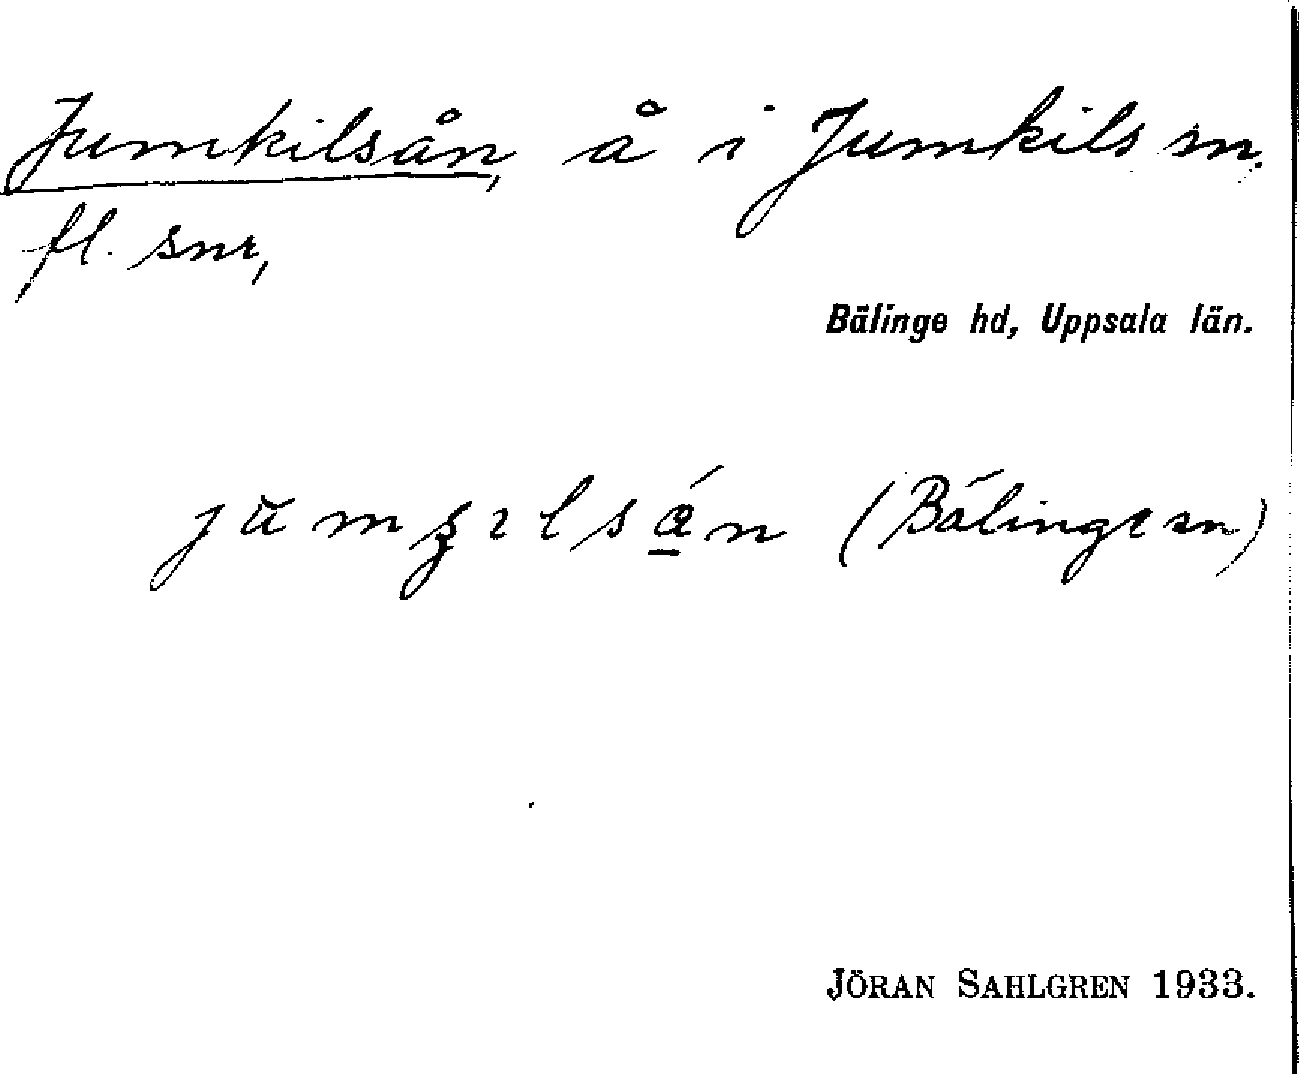 Jumkilsån, å i Jumkils sn m.
fl. snr,
Bälinge hd, Uppsala län.
(Bälinge sn)
JÖRAN SAHLGREN 1933.